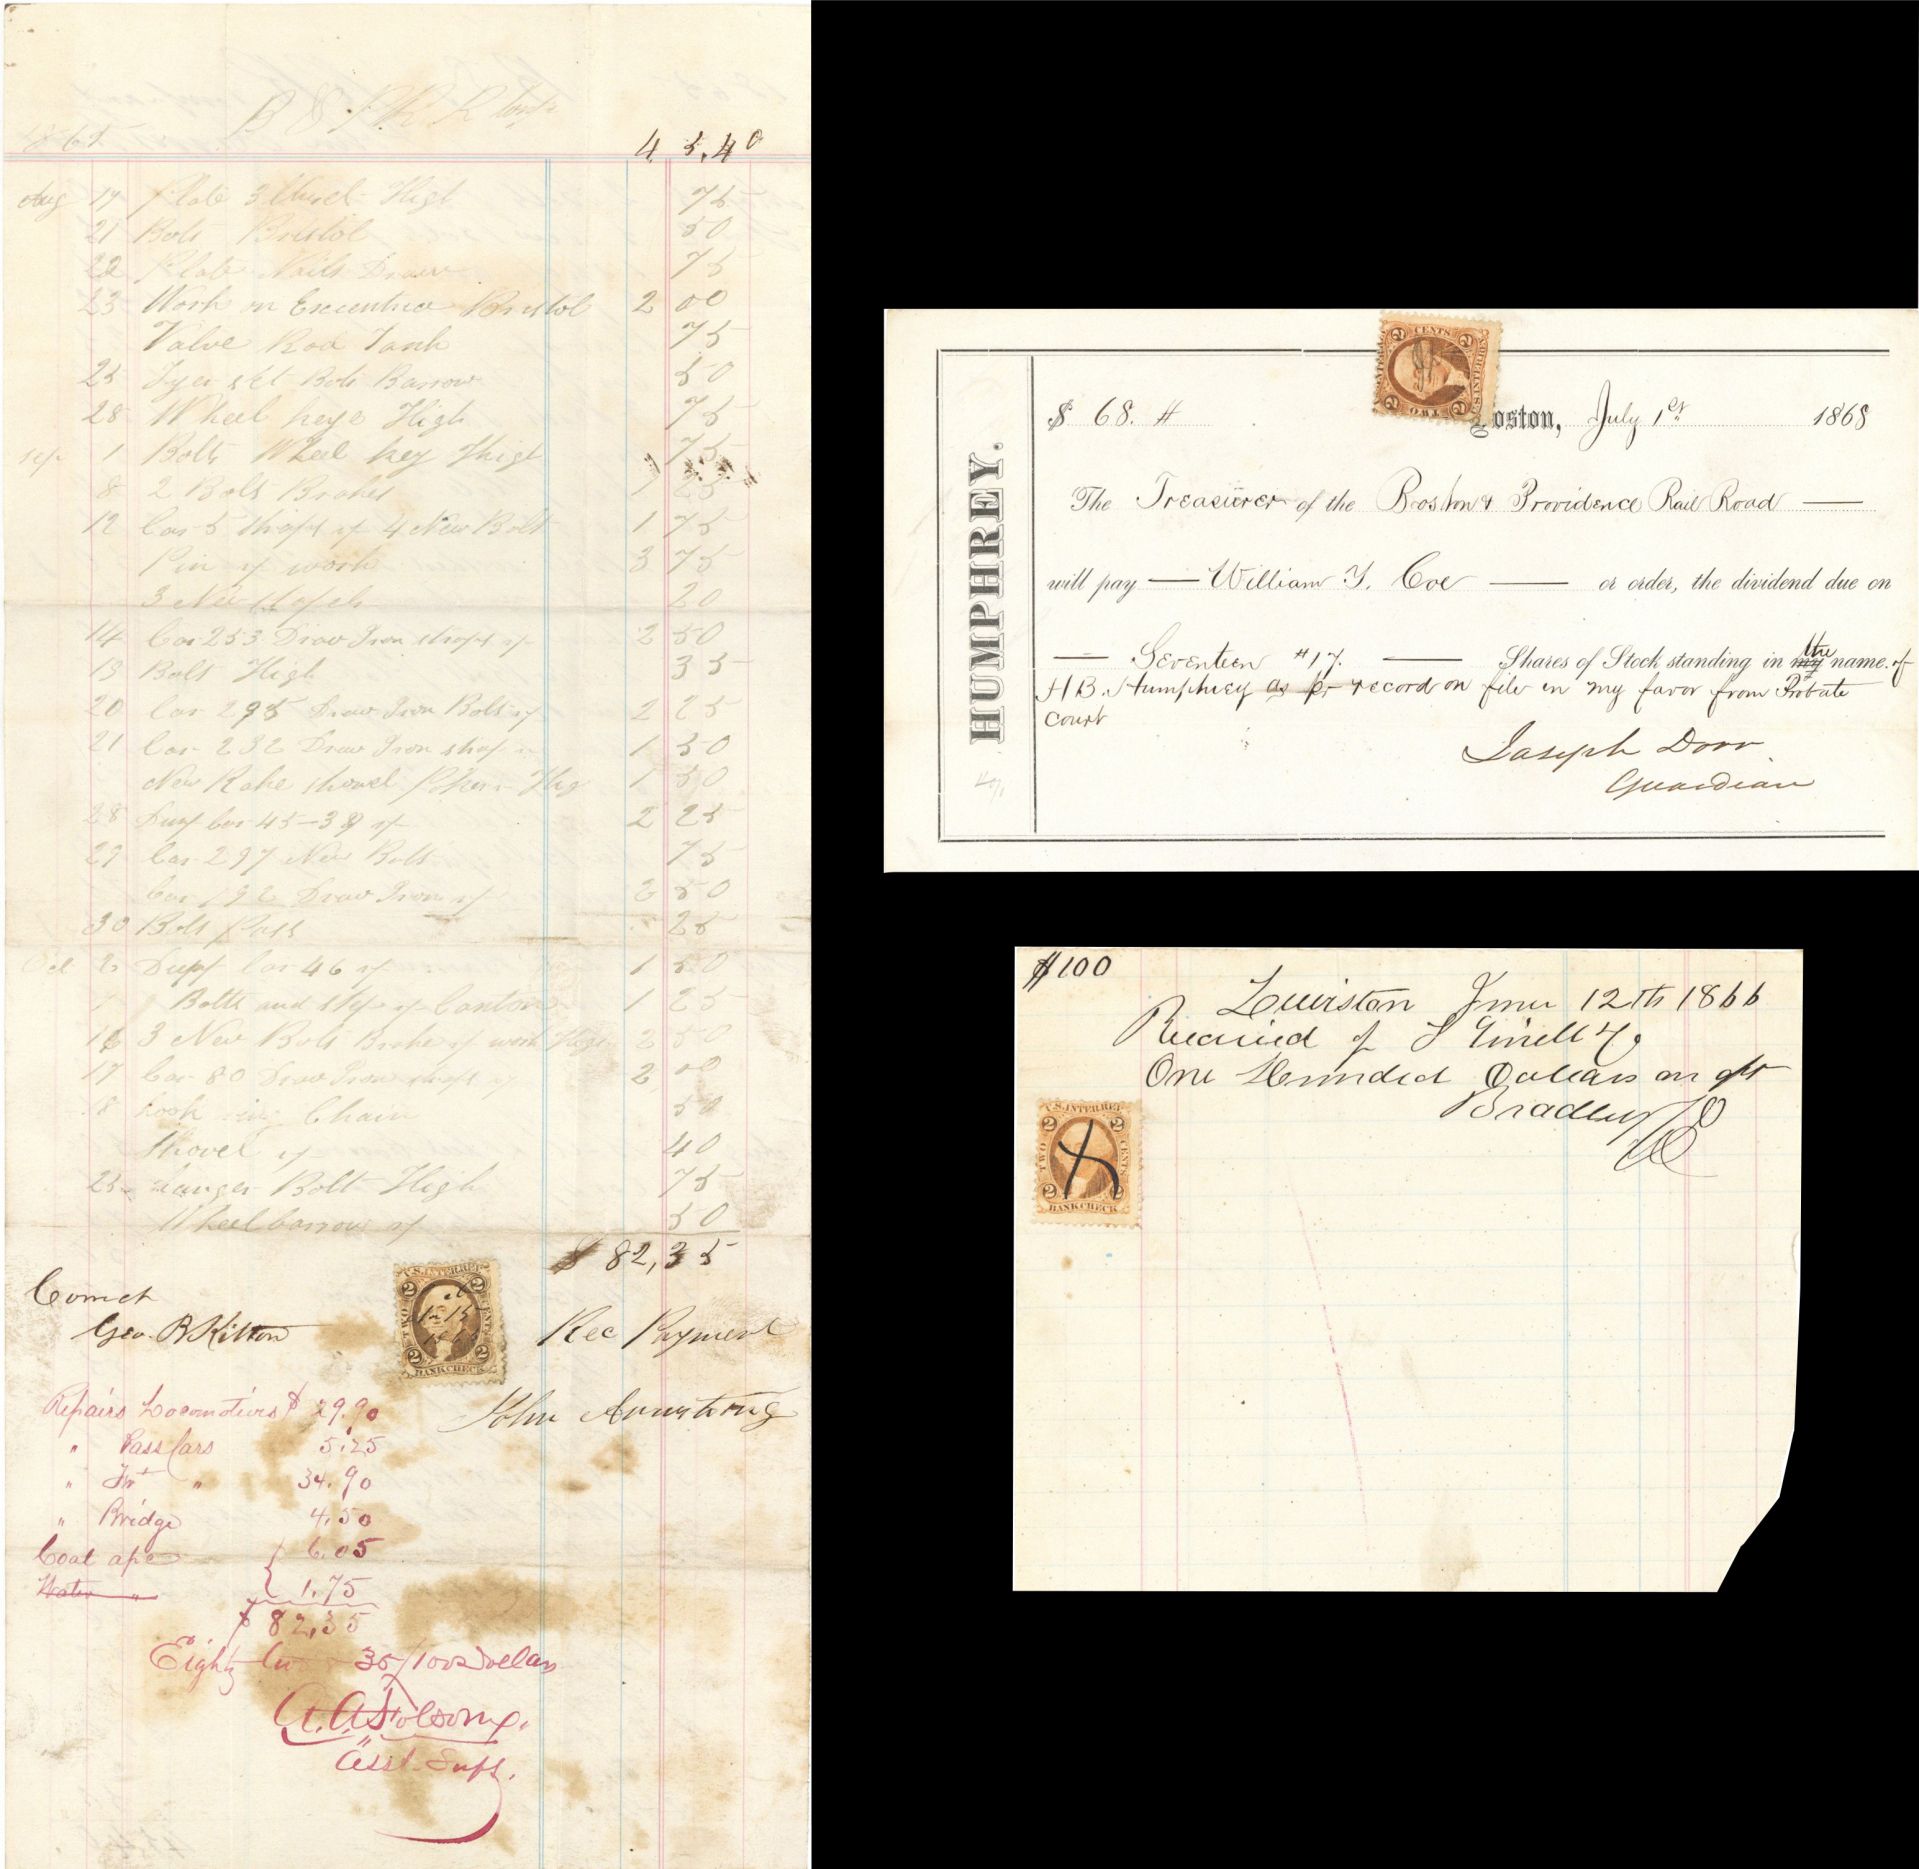 1865
45.40
Aug 17 Plate 3 High 75
21 Bolt Bristol 50
22 Plate Nails 75
23 Work on Bristol 2 00
Valve Rod Tank 75
25 set Bolt Barrow 50
28 Wheel keys High 75
Sep 1 Bolts Wheel key High 75
8 2 Bolts Brakes 1 25
12 Car 5 straps rf 4 New Bolt 1 75
Pin rf work 3 75
3 New 20
14 Car 253 Draw Iron straps rf 2 50
15 Bolt High 35
20 Car 295 Draw Iron Bolts rf 2 25
21 Car 232 Draw Iron strap rf 1 50
New Rake shovel Poker High 1 50
28 Dump Car 45-39 rf 2 25
29 Car 297 New Bolt 75
Car 192 Draw Iron rf 2 50
30 Bolt Pass 25
Oct 2 Dump Car 46 rf 1 50
Bolts and step rf Canton 1 25
16 3 New Bolt Brake rf work High 2 50
17 Car 80 Draw Iron straps rf 2 00
18 Hook Chain 50
Shovel rf 40
25 hanger Bolt High 75
Wheelbarrow rf 50
$ 82,35
Correct
Geo. R Kilton
U.S. INTER. REV.
2 2
TWO CENTS
2 2
BANK CHECK
Rec Payment
John Armstrong
Repairs Locomotives $ 29.90
" Pass Cars 5.25
" Frt " 34.90
" Bridge 4.50
Coal a/c 6.05
Water " 1.75
$ 82,35
Eighty two 35/100 Dollars
A. A. Folsom
Asst. Supt.
HUMPHREY.
2 CENTS 2
U.S. INTER. REV.
2 TWO 2
$ 68. # Boston, July 1st 1868
The Treasurer of the Boston & Providence Rail Road
will pay — William T. Coe — or order, the dividend due on
— Seventeen #17. — Shares of Stock standing in my the name of
H B. Humphrey as pr record on file in my favor from Probate
Court
Joseph Dorr
Guardian
$100
Lewiston June 12th 1866
Received of
One Hundred Dollars on
Bradley & Co
U.S. INTER. REV.
2 2
TWO CENTS
2 2
BANK CHECK